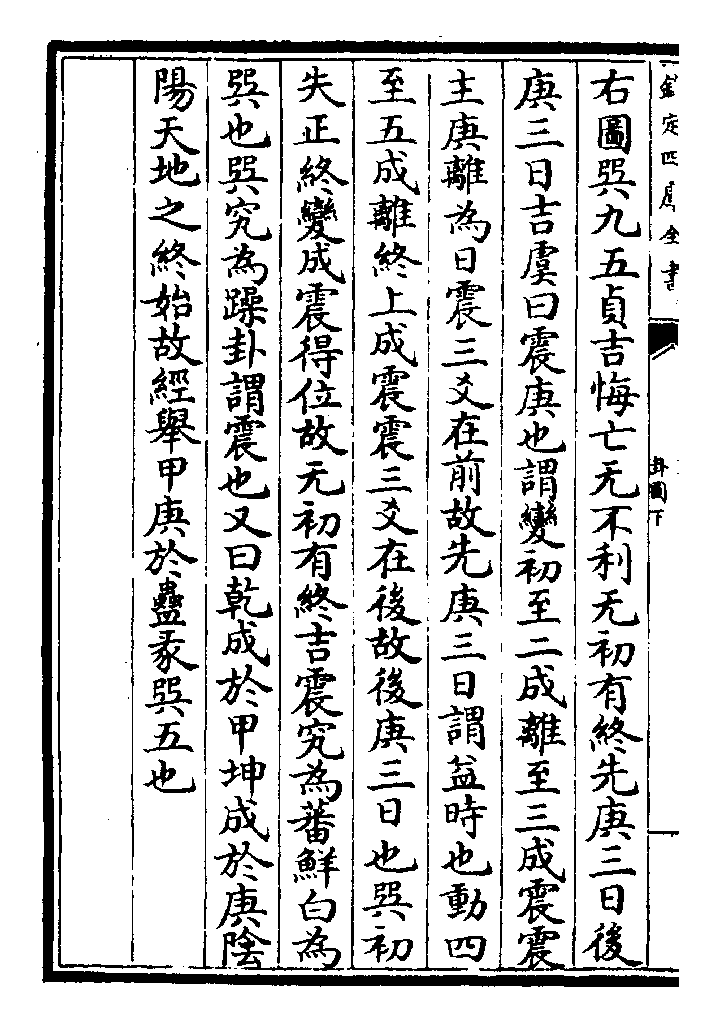 欽定四庫全書
卦圖下
右圖巽九五貞吉悔亡无不利无初有終先庚三日後
庚三日吉虞曰震庚也謂變初至二成離至三成震震
主庚離為日震三爻在前故先庚三日謂益時也動四
至五成離終上成震震三爻在後故後庚三日也巽初
失正終變成震得位故无初有終吉震究為蕃鮮白為
巽也巽究為躁卦謂震也又曰乾成於甲坤成於庚陰
陽天地之終始故經舉甲庚於蠱彖巽五也